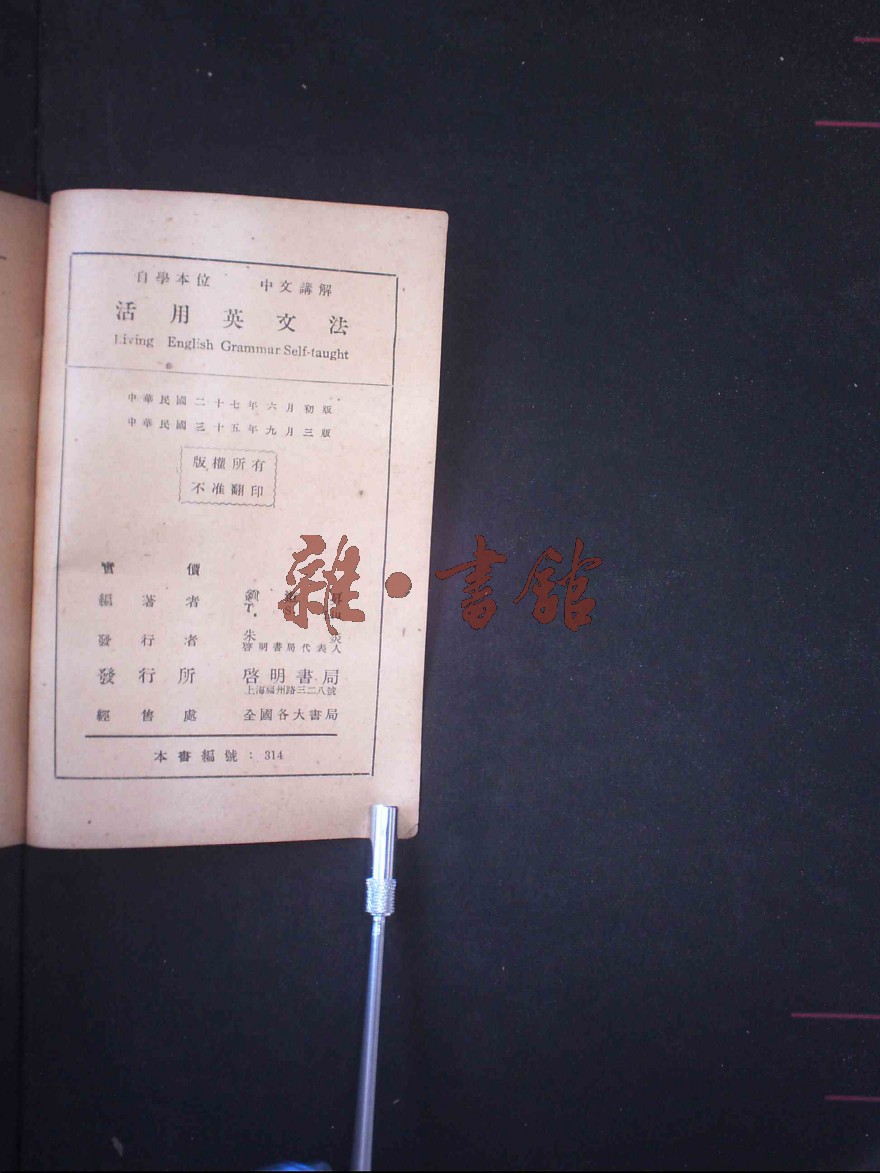 自學本位 中文講解
活用英文法
Living English Grammar Self-taught
中華民國二十七年六月初版
中華民國三十五年九月三版
版權所有
不准翻印
實價
編著者
發行者 朱
啓明書局代表人
發行所 啓明書局
上海福州路三二八號
經售處 全國各大書局
本書編號：314
雜·書館